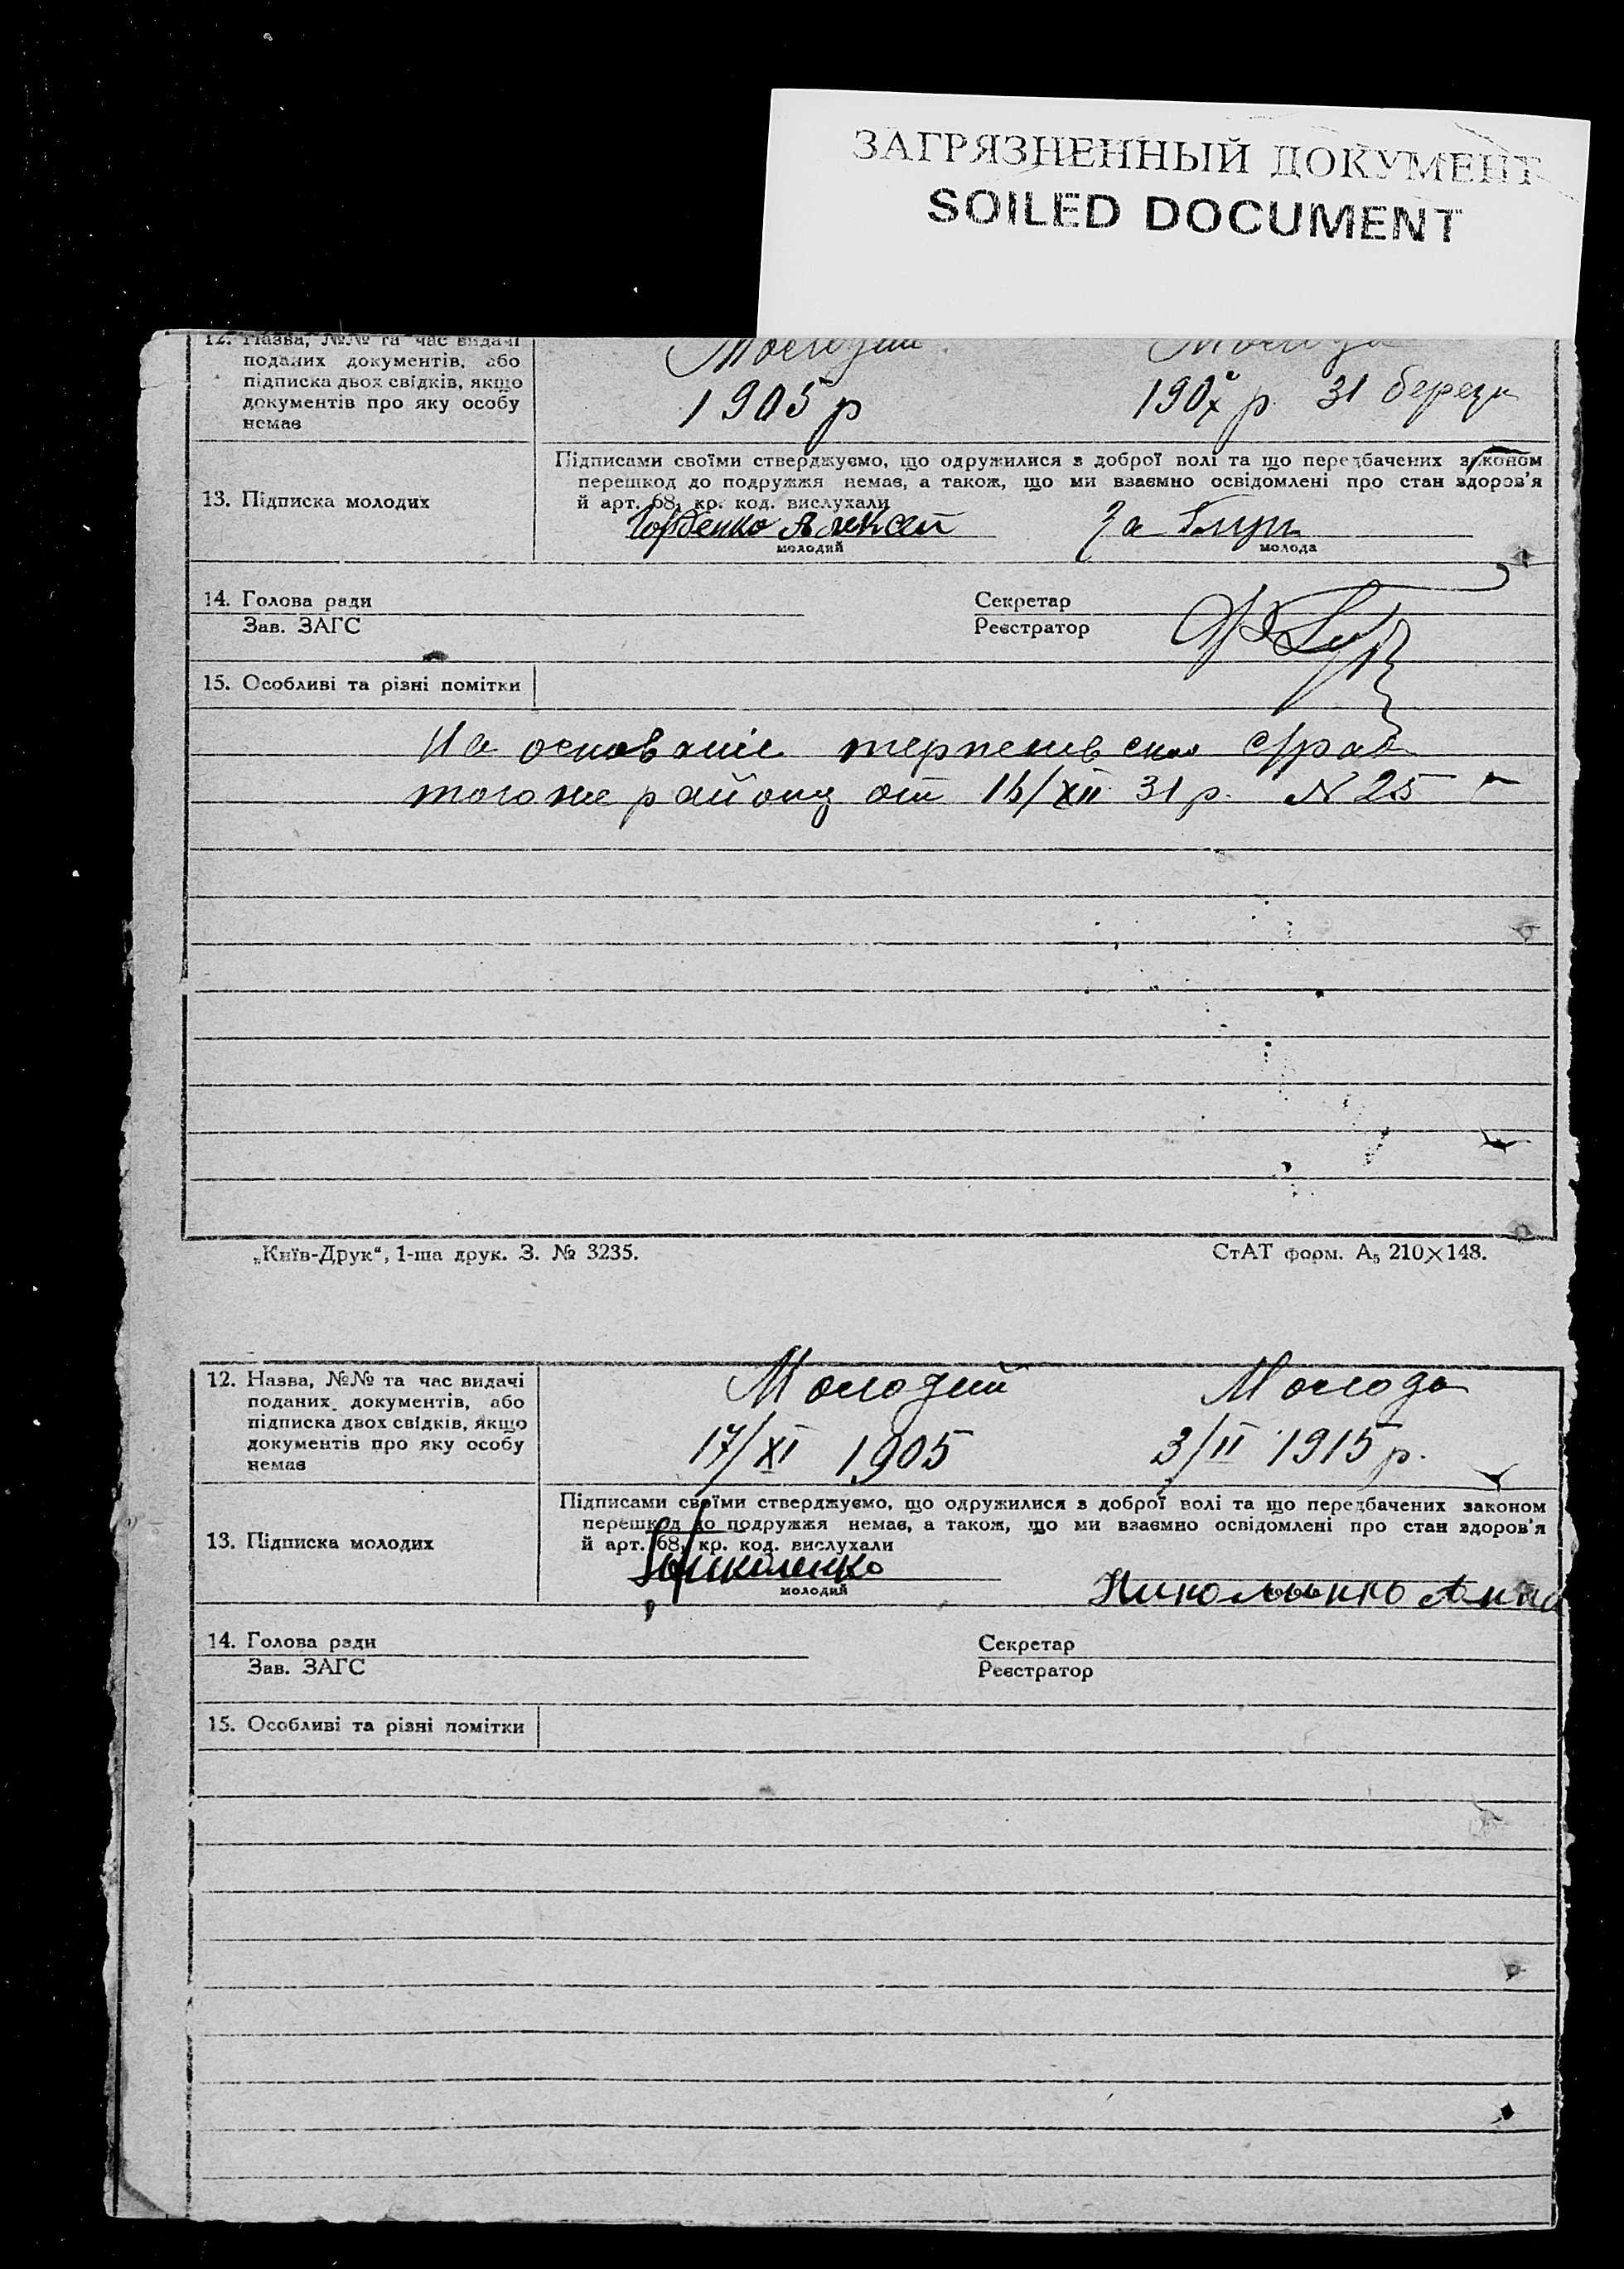 ЗАГРЯЗНЕННЫЙ ДОКУМЕНТ
SOILED DOCUMENT
12. Назва, №№ та час видачі
поданих документів, або
підписка двох свідків, якщо
документів про яку особу
немає
Молодий Молода
1905 р р. 31 березн
Підписами своїми стверджуємо, що одружилися з доброї волі та що передбачених законом
перешкод до подружжя немає, а також, що ми взаємно освідомлені про стан здоров'я
й арт. 68, кр. код. вислухали
13. Підписка молодих
Горбенко Алексей За
молодий молода
14. Голова ради Секретар
Зав. ЗАГС Реєстратор
15. Особливі та різні помітки
На основание
того же району от 16/XII 31 р. N 25
„Київ-Друк“, 1-ша друк. З. № 3235. СтАТ форм. А₅ 210×148.
12. Назва, №№ та час видачі
поданих документів, або
підписка двох свідків, якщо
документів про яку особу
немає
Молодий Молода
17/XI 1905 3/II 1915 р.
Підписами своїми стверджуємо, що одружилися з доброї волі та що передбачених законом
перешкод до подружжя немає, а також, що ми взаємно освідомлені про стан здоров'я
й арт. 68, кр. код. вислухали
13. Підписка молодих
Николенко Анна
молодий
14. Голова ради Секретар
Зав. ЗАГС Реєстратор
15. Особливі та різні помітки